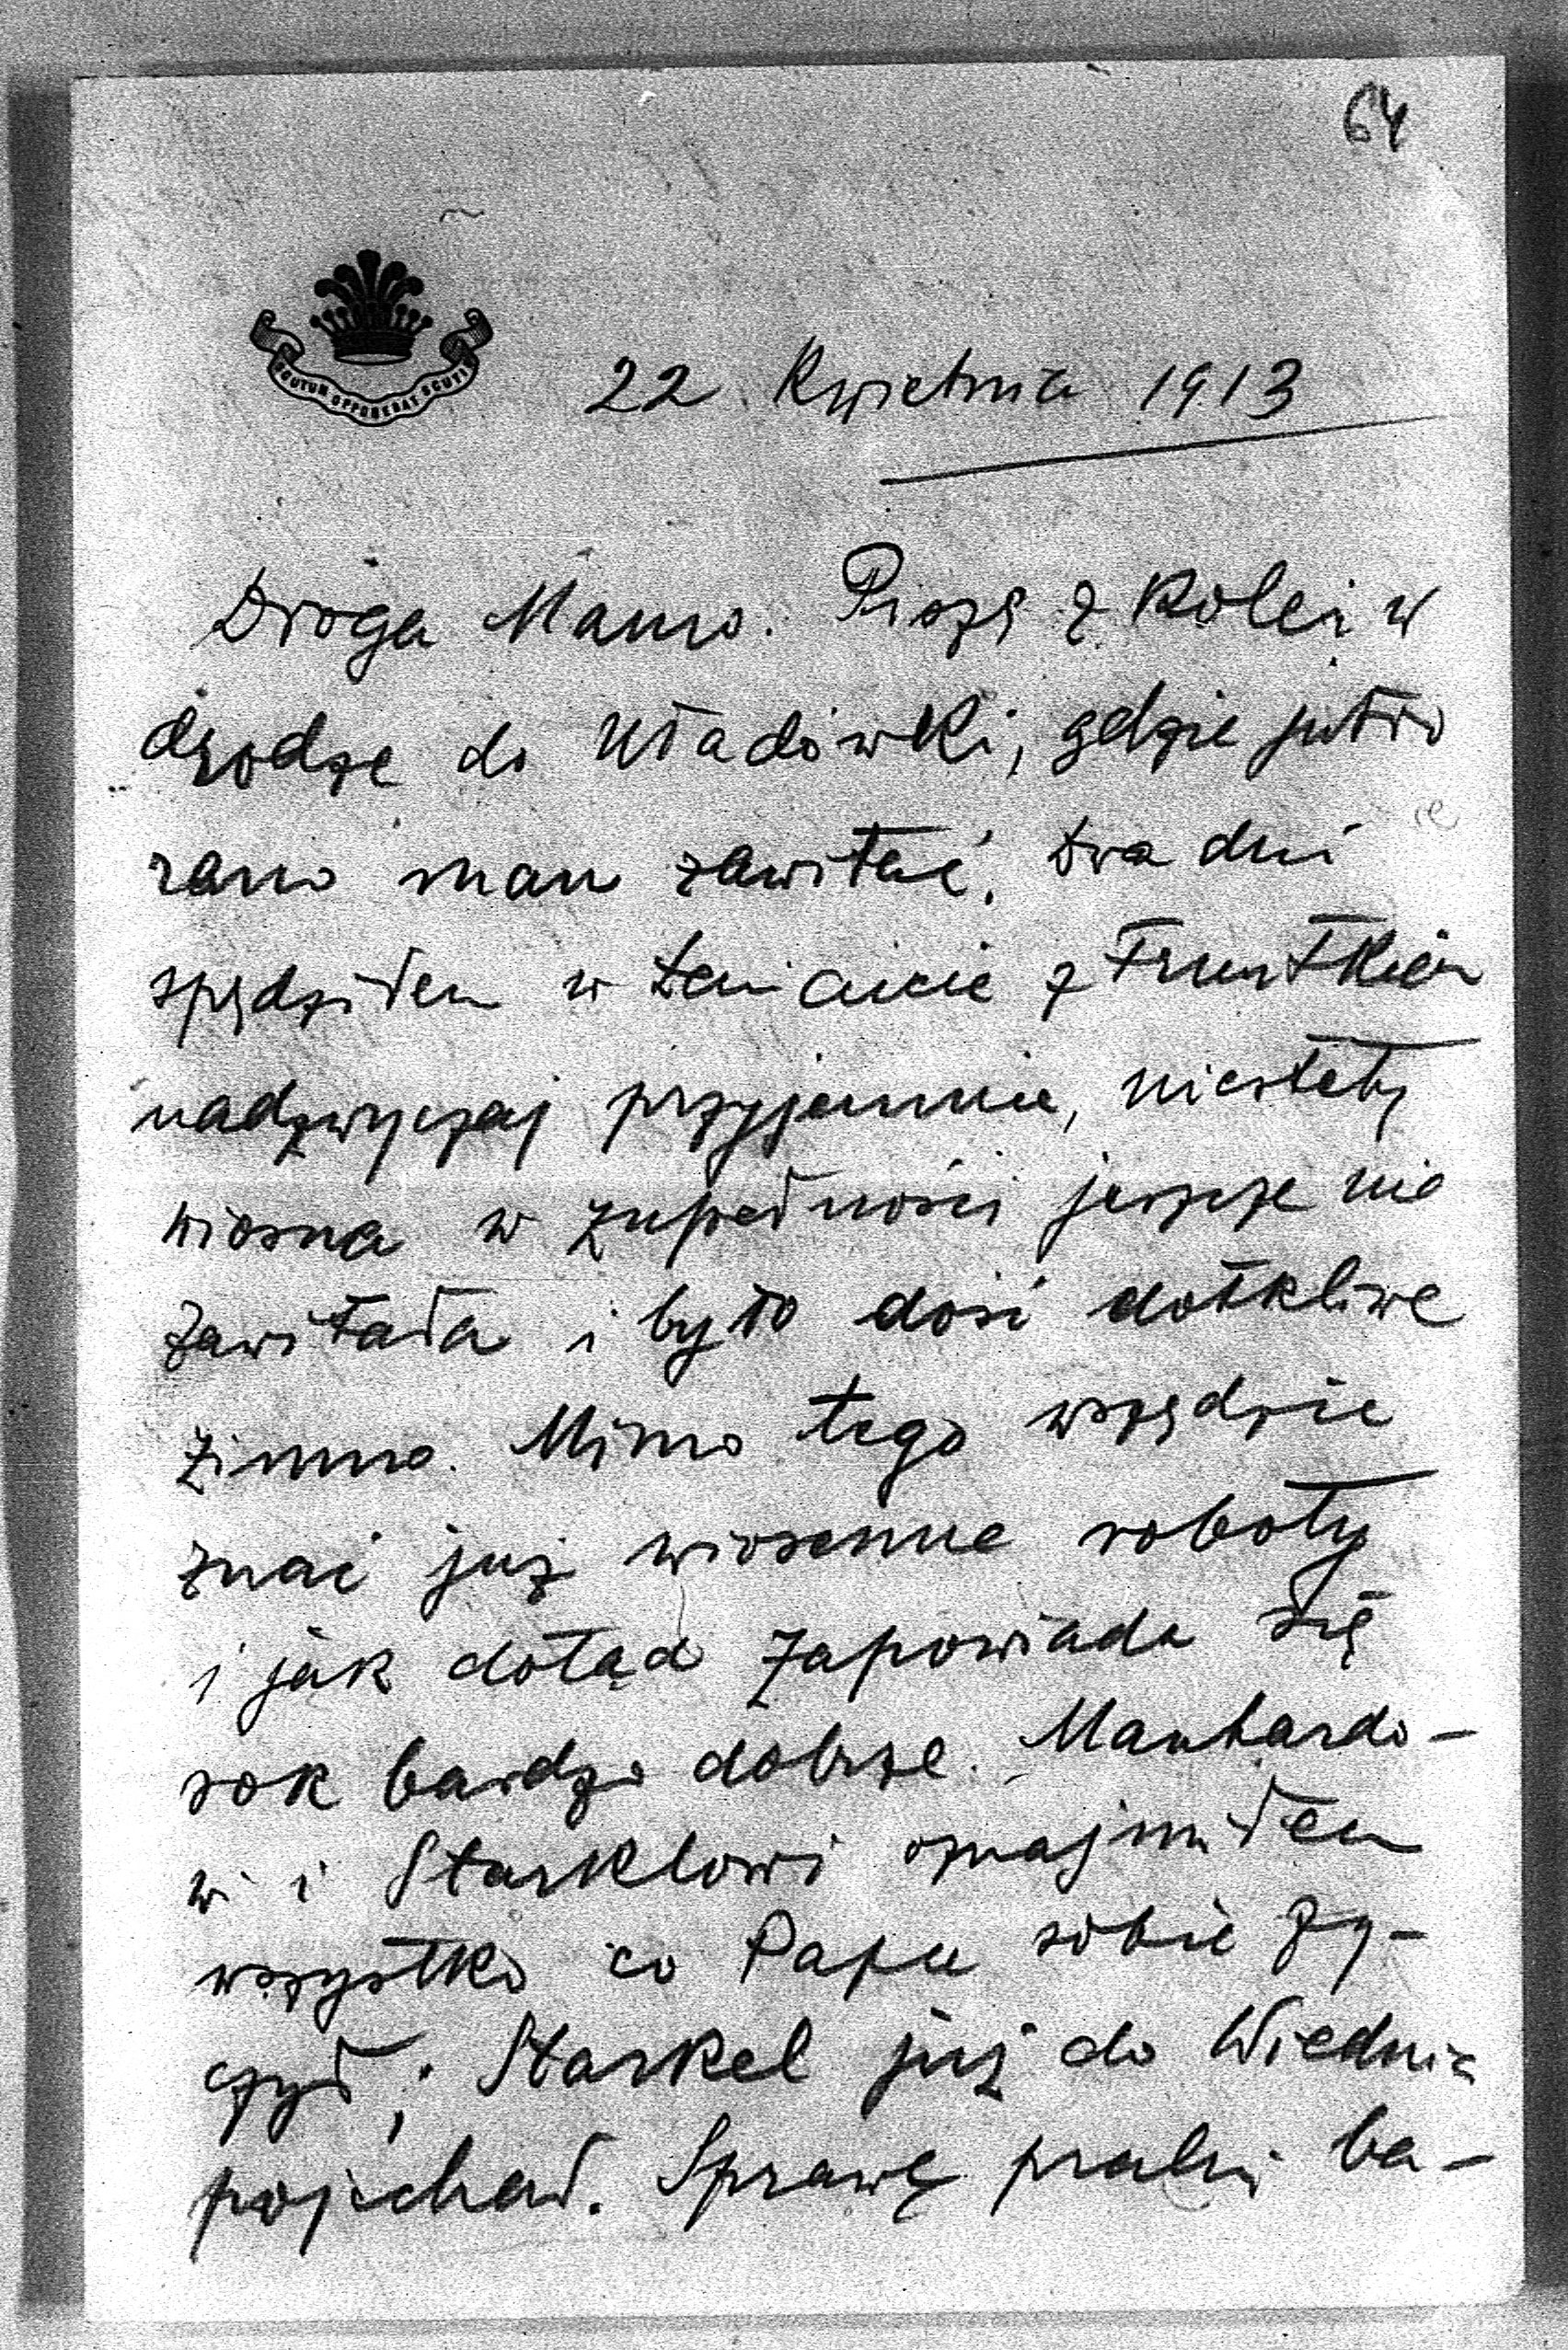 64
SCUTUM OPPONEBAT SCUTIS
22 Kwietnia 1913
Droga Mamo. Piszę z kolei w
drodze do Uładówki, gdzie jutro
rano mam zawitać. Dwa dni
spędziłem w Łańcucie z
nadzwyczaj przyjemnie, niestety
wiosna w zupełności jeszcze nie
zawitała i było dość dotkliwe
zimno. Mimo tego wszędzie
znać już wiosenne roboty
i jak dotąd zapowiada się
rok bardzo dobrze. Manhardo-
wi i Starklowi oznajmiłem
wszystko co Papa sobie ży-
czył; Starkel już do Wiednia
pojechał. Sprawę pralni ba-